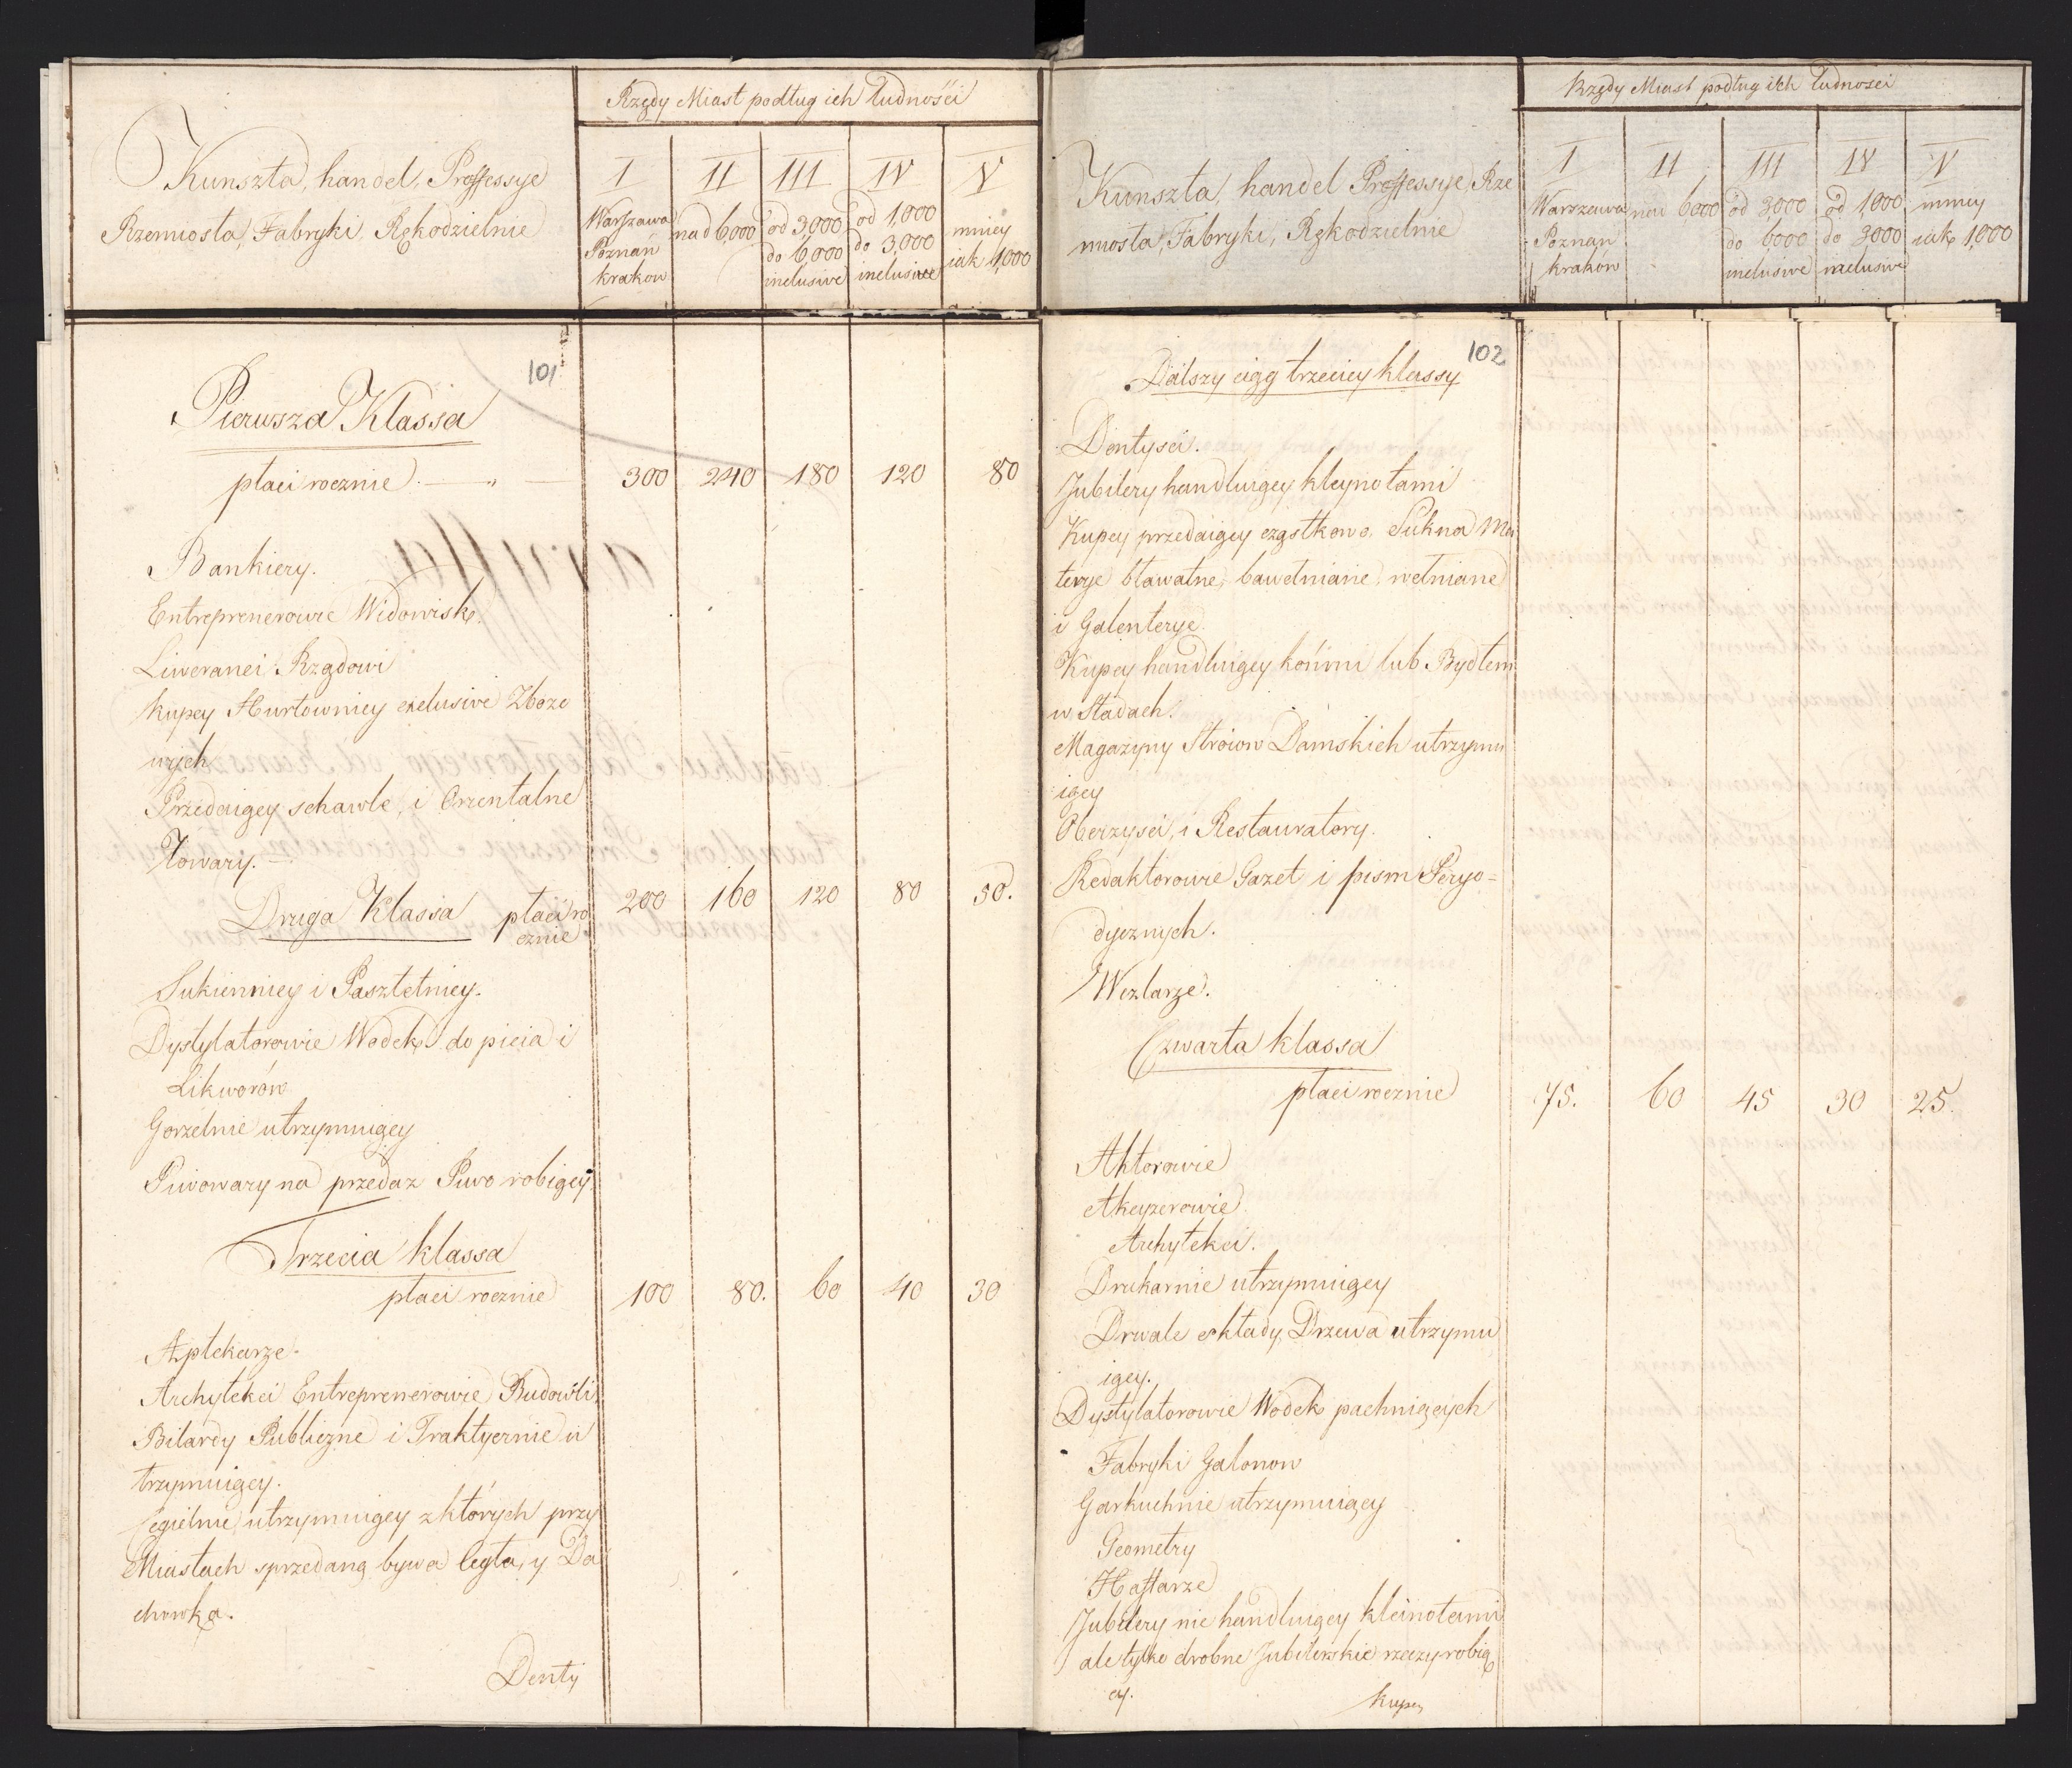 Rzędy Miast podług ich Ludności
Kunszta, handel, Proffessye
Rzemiosła, Fabryki, Rękodzielnie
I II III IV V
Warszawa Poznań krakow
nad 6,000
od 3,000 do 6,000 inclusive
od 1,000 do 3,000 inclusive
mniey iak 1,000
101
Pierwsza Klassa
płaci rocznie 300 240 180 120 80
Bankiery.
Entreprenerowie Widowisk.
Liweranci Rządowi
Kupcy Hurtownicy exclusive Zbożo
wych
Przedaiący schawle, i Orientalne
Towary.
Druga Klassa płaci ro
cznie 200 160 120 80 50.
Sukiennicy i Pasztetnicy.
Dystylatorowie Wodek do picia i
Likworów
Gorzelnie utrzymuiący
Piwowary na przedaż Piwo robiący
Trzecia klassa
płaci rocznie 100 80. 60 40 30
Aptekarze.
Archytekci Entreprenerowie Budowli
Bilardy Publiczne i Traktyernie u
trzymuiący.
Cegielnie utrzymuiący z których przy
Miastach sprzedaną bywa Cegła, y Da
chowka.
Denty
Rzędy Miast podług ich Ludności
Kunszta, handel Proffessye, Rze
miosła, Fabryki, Rękodzielnie
I II III IV V
Warszawa Poznań kraków
nad 6000
od 3000 do 6000 inclusive
od 1,000 do 3000 inclusive
mniey iak 1,000
102
Dalszy ciąg trzeciey klassy
Dentysci.
Jubilery handluiący kleynotami
Kupcy przedaiący cząstkowo, Sukna Ma
terye bławatne, bawełniane, wełniane
i Galenterye
Kupcy handluiący końmi lub Bydłem
w Stadach.
Magazyny Stroiow Damskich utrzymu
iący
Oberzysci, i Restauratory.
Redaktorowie Gazet i pism Peryo-
dycznych.
Wexlarze.
Czwarta klassa
płaci rocznie 75. 60 45 30 25.
Aktorowie
Akcyzerowie
Archytekci.
Drukarnie utrzymuiący
Drwale składy Drzewa utrzymu
iący.
Dystylatorowie Wodek pachniących
Fabryki Galonow
Garkuchnie utrzymuiący
Geometry
Haftarze
Jubilery nie handluiący kleinotami
ale tylko drobne Jubilerskie rzeczy robią
cy.
Kupcy